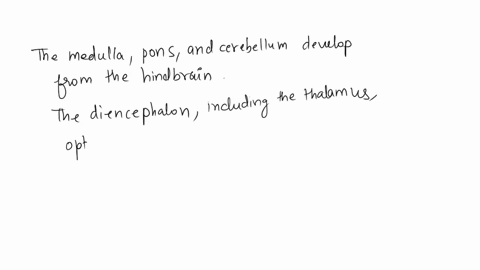 The medulla, pons, and cerebellum develop
from the hindbrain.
The diencephalon, including the thalamus,
opt